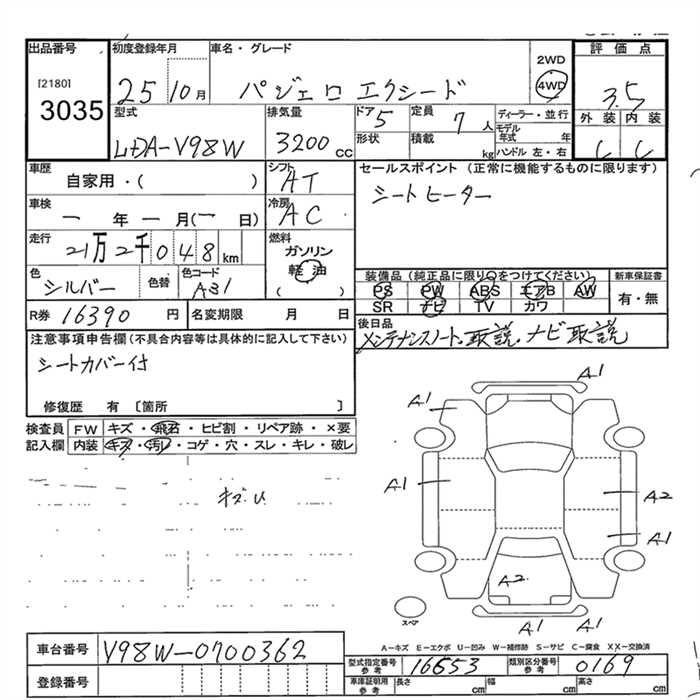 出品番号 初度登録年月 車名・グレード 評価点
[2180]
3035
25 10月 パジェロ エクシード 2WD 4WD 3.5
型式 排気量 ドア 定員 ディーラー・並行 外装 内装
LDA-V98W 3200cc 5 7人 モデル年式 年 C C
形状 積載 kg ハンドル 左・右
車歴 シフト セールスポイント (正常に機能するものに限ります)
自家用・( ) AT シートヒーター
車検 冷房
一 年 一 月(一 日) AC
走行 燃料
21万2千048km ガソリン
軽油
( )
色 色替 色コード 装備品(純正品に限り○をつけてください) 新車保証書
シルバー A31 PS PW ABS エアB AW 有・無
SR ナビ TV カワ
R券 16390円 名変期限 月 日 後日品
メンテナンスノート、取説、ナビ取説
注意事項申告欄(不具合内容等は具体的に記入して下さい)
シートカバー付
修復歴 有 [箇所 ]
検査員 FW キズ・飛石・ヒビ割・リペア跡・×要
記入欄 内装 キズ・汚レ・コゲ・穴・スレ・キレ・破レ
A1
A1
A1
A2
A1
A2
A1 A1
スペア
A-キズ E-エクボ U-凹み W-補修跡 S-サビ C-腐食 XX-交換済
車台番号 V98W-0700362
型式指定番号 参考 16653 類別区分番号 参考 0169
登録番号 車庫証明用 参考 長さ cm 幅 cm 高さ cm